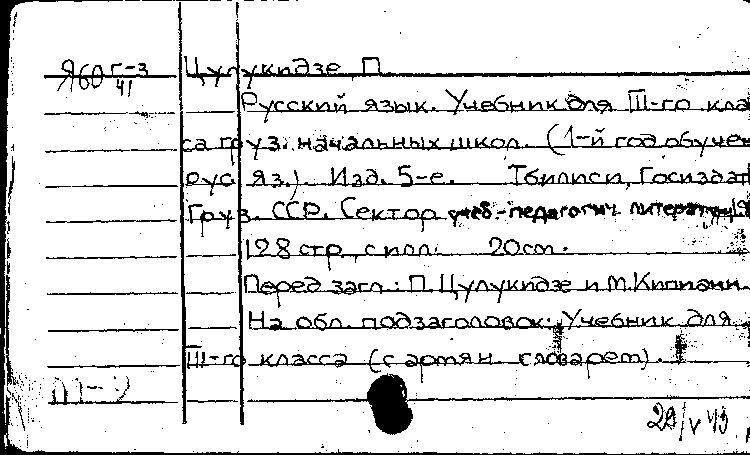 Я60 Г-3 Цулукидзе, П.
41
Русский язык. Учебник для III-го клас
са груз. начальных школ. (1-й год обучен
рус. яз.). Изд. 5-е. Тбилиси, Госиздат
Груз. ССР. Сектор учеб.-педагогич. литературы, 19
128 стр. с илл. 20 см.
Перед загл.: П. Цулукидзе и М. Кипиани.
На обл. подзаголовок: Учебник для
III-го класса (с армян. словарем).
29/V 43